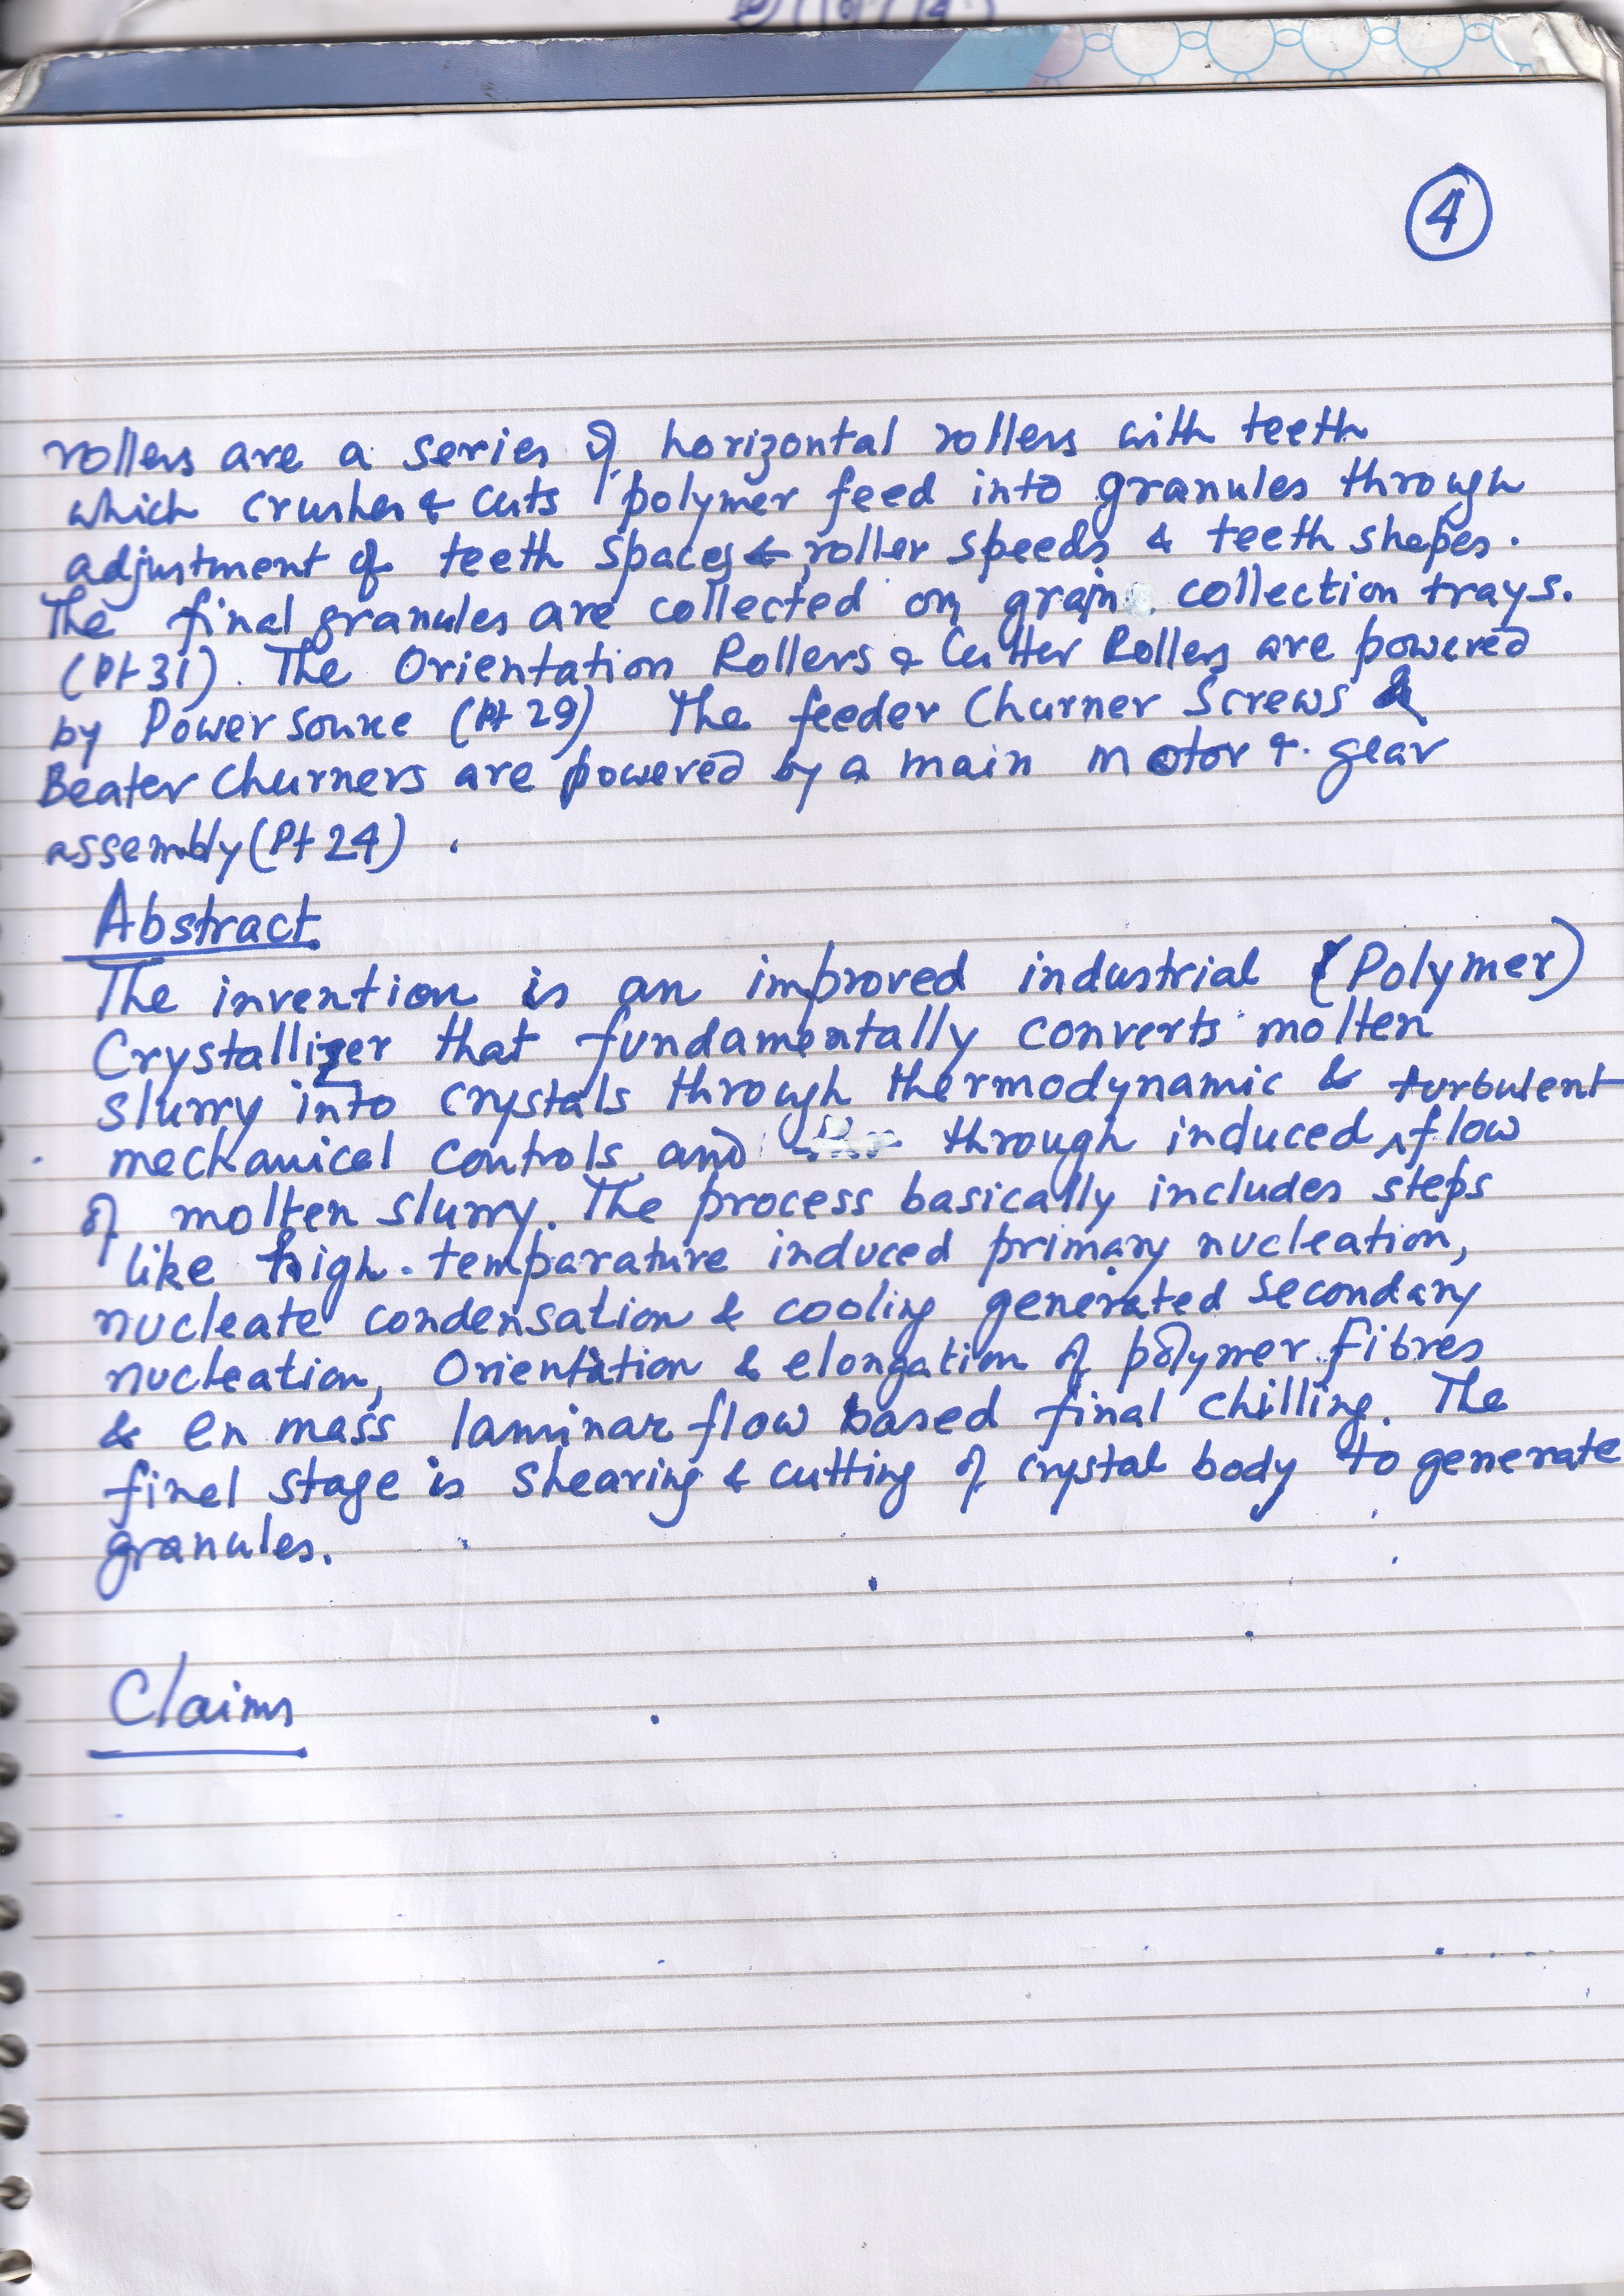 4
rollers are a series of horizontal rollers with teeth
which crushes & cuts polymer feed into granules through
adjustment of teeth spaces, roller speeds & teeth shapes.
The final granules are collected on grain collection trays.
(Pt 31). The Orientation Rollers & Cutter Rollers are powered
by Power source (Pt 29) The feeder Churner Screws &
Beater Churners are powered by a main motor &. gear
assembly (Pt 24) .
Abstract
The invention is an improved industrial (Polymer)
Crystallizer that fundamentally converts molten
slurry into crystals through thermodynamic & turbulent
mechanical controls and through induced ^ flow
of molten slurry. The process basically includes steps
like high-temparature induced primary nucleation,
nucleate condensation & cooling generated secondary
nucleation, Orientation & elongation of polymer fibres
& en mass laminar flow based final chilling. The
finel stage is shearing & cutting of crystal body to generate
granules.
Claims